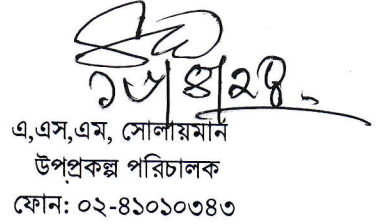 এ,এস,এম, সোলায়মান
উপপ্রকল্প পরিচালক
ফোন: ০২-৪১০১০৩৪৩